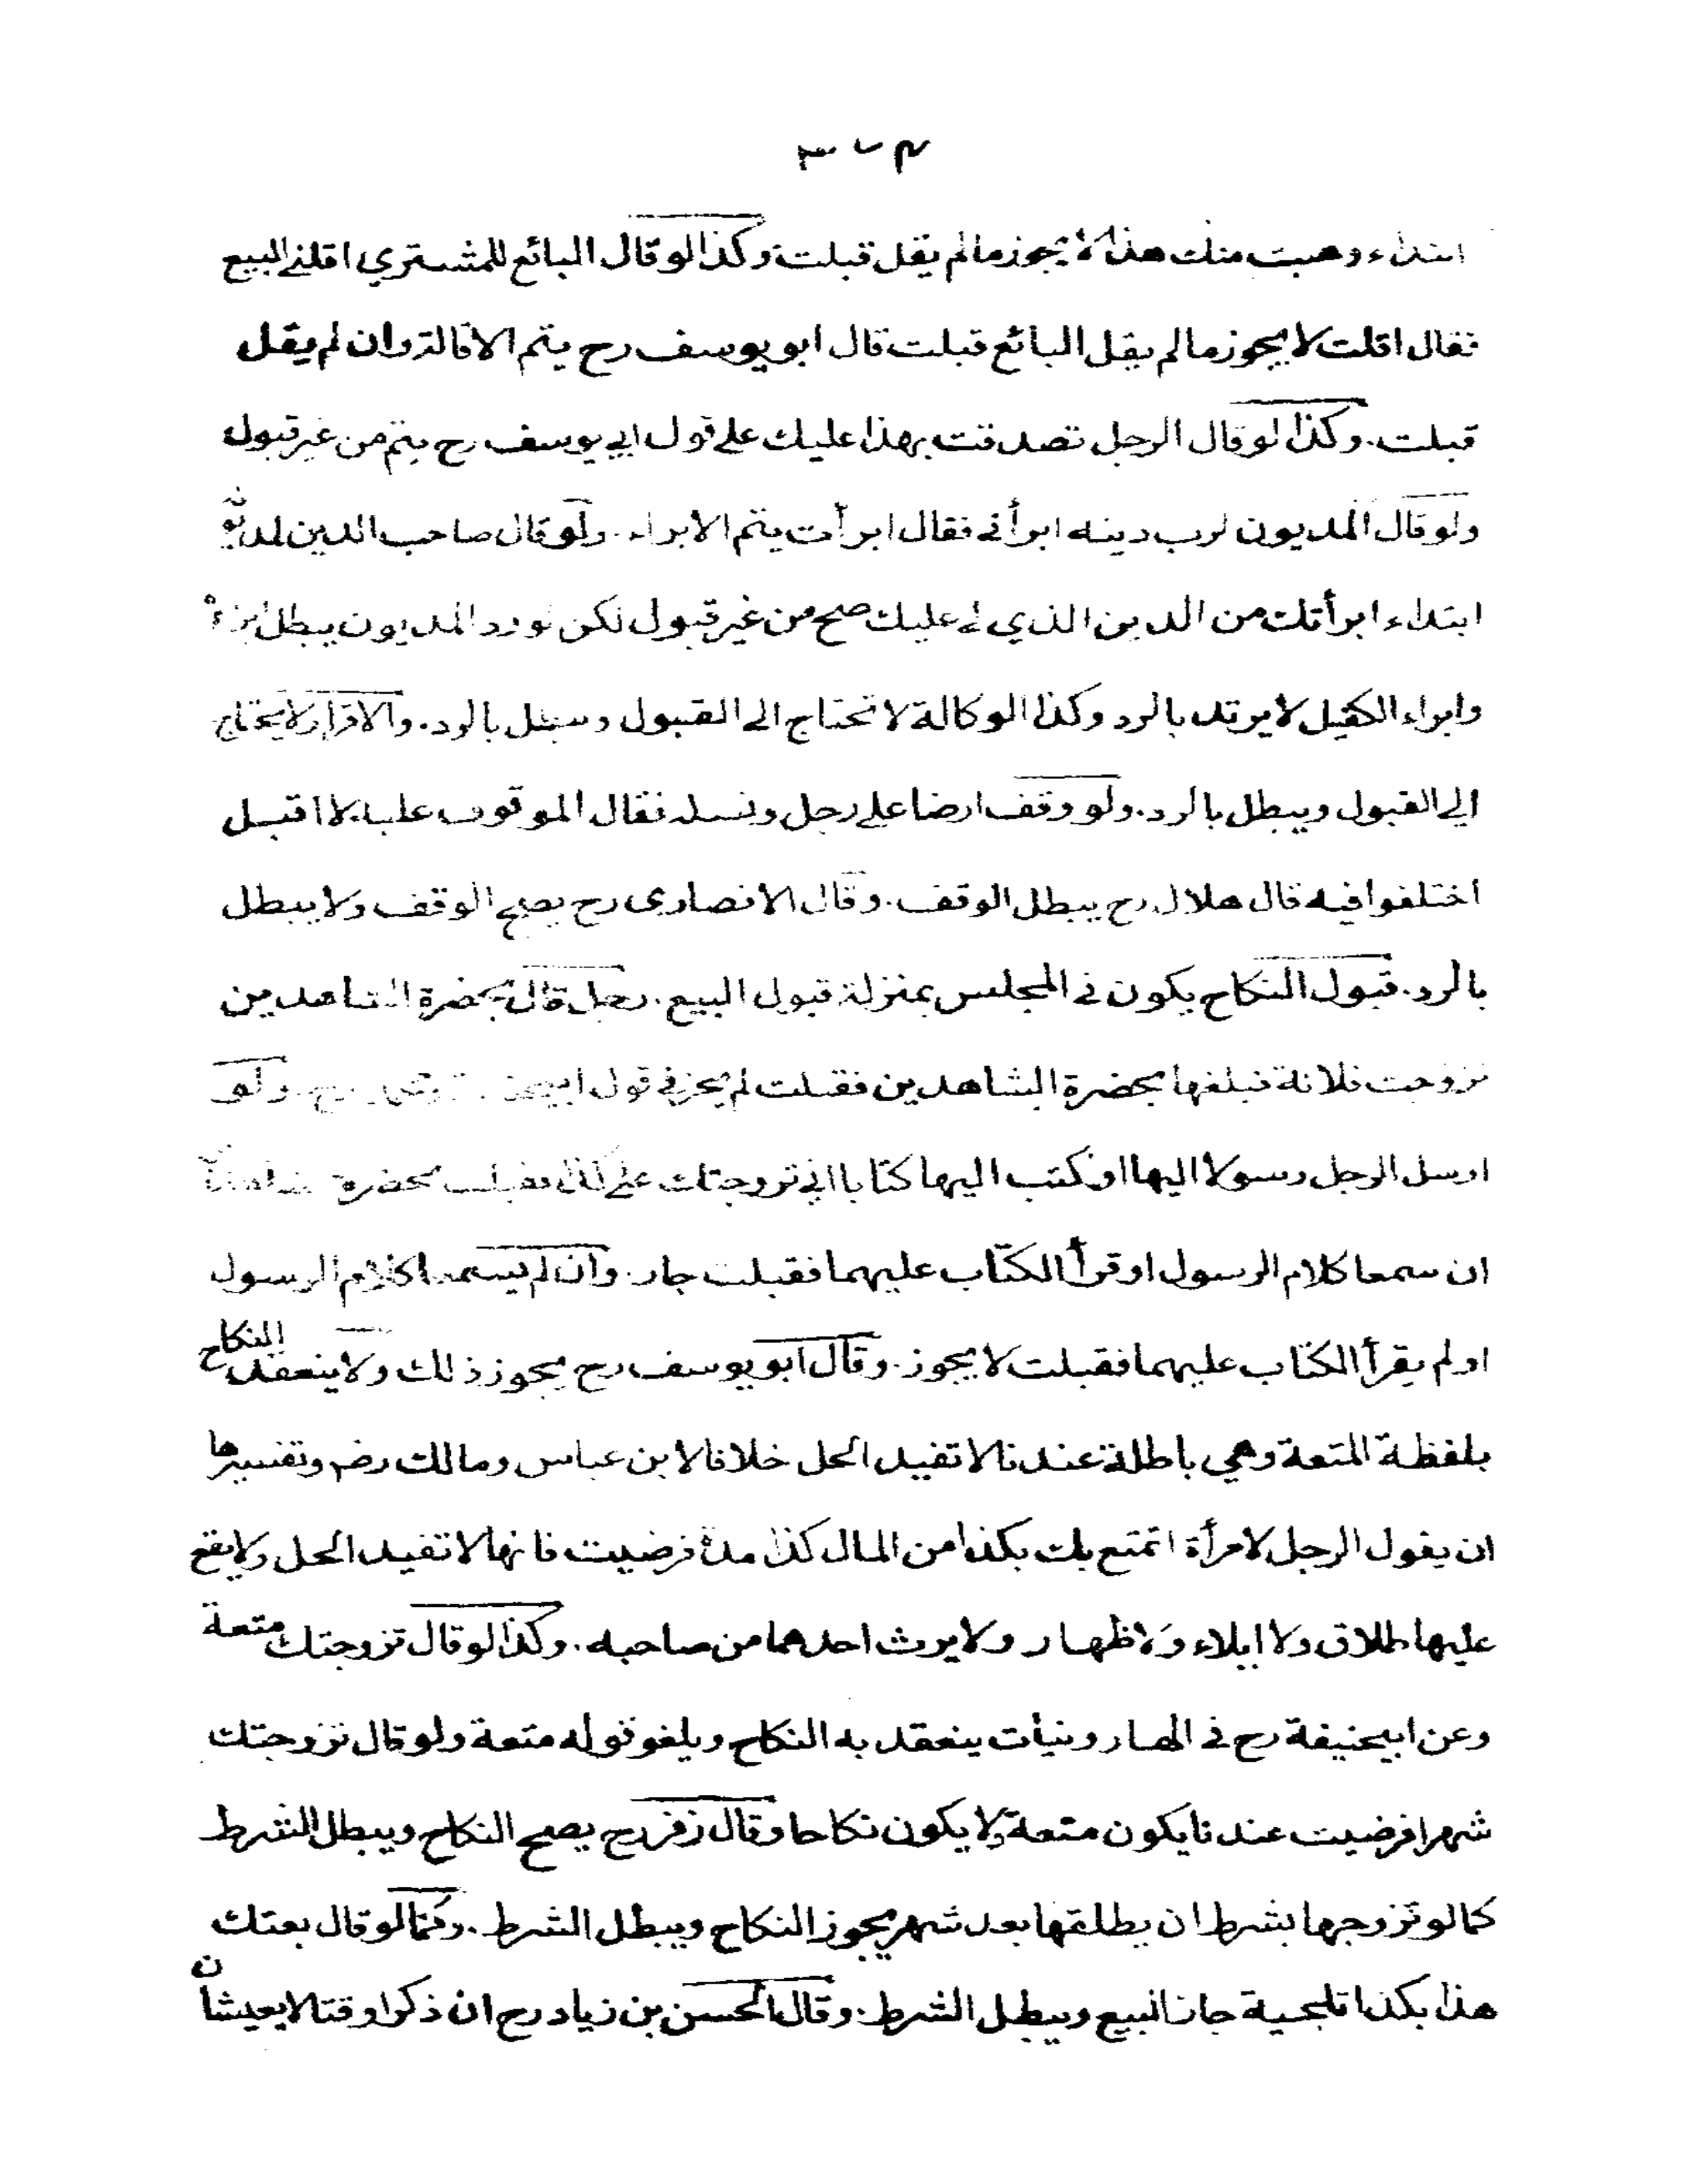 ابتداء وهبت منك هذا لا يجوز ما لم يقل قبلت وكذا لو قال البائع للمشتري اقلني البيع
فقال اقلت لا يجوز ما لم يقل البائع قبلت قال ابو يوسف رح يتم الاقالة وان لم يقل
قبلت. وكذا لو قال الرجل تصدقت بهذا عليك على قول ابي يوسف رح يتم من غير قبول
ولو قال المديون لرب دينه ابرأني فقال ابرأت يتم الابراء. ولو قال صاحب الدين لمديونه
ابتداء ابرأتك من الدين الذي لي عليك صح من غير قبول لكن لو رد المديون يبطل
وابراء الكفيل لا يرتد بالرد وكذا الوكالة لا تحتاج الى القبول وتبطل بالرد. والاقرار لا يحتاج
الي القبول ويبطل بالرد. ولو وقف ارضا على رجل ونسله فقال الموقوف عليه لا اقبل
اختلفوا فيه قال هلال رح يبطل الوقف. وقال الانصارى رح يصح الوقف ولا يبطل
بالرد. قبول النكاح يكون في المجلس بمنزلة قبول البيع. رجل قال بحضرة الشاهدين
تزوجت فلانة فبلغها بحضرة الشاهدين فقبلت لم يجز في قول ابيحنيفة رح ولو
ارسل الرجل رسولا اليها او كتب اليها كتابا اني تزوجتك على كذا فقبلت بحضرة
ان سمعا كلام الرسول او قرأ الكتاب عليهما فقبلت جاز. وان لم يسمعا كلام الرسول
او لم يقرأ الكتاب عليهما فقبلت لا يجوز. وقال ابو يوسف رح يجوز ذلك ولا ينعقد النكاح
بلفظة المتعة وهي باطلة عندنا لا تفيد الحل خلافا لابن عباس ومالك رضم وتفسيرها
ان يقول الرجل لامرأة اتمتع بك بكذا من المال كذا مدة فرضيت فانها لا تفيد الحل ولا يقع
عليها طلاق ولا ايلاء ولا ظهار ولا يرث احدهما من صاحبه. وكذا لو قال تزوجتك متعة
وعن ابيحنيفة رح في الهارونيات ينعقد به النكاح ويلغو قوله متعة ولو قال تزوجتك
شهرا فرضيت عندنا يكون متعة ولا يكون نكاحا وقال زفر رح يصح النكاح ويبطل الشرط
كما لو تزوجها بشرط ان يطلقها بعد شهر يجوز النكاح ويبطل الشرط. وكما لو قال بعتك
هذا بكذا تلجية جاز البيع ويبطل الشرط. وقال الحسن بن زياد رح ان ذكرا وقتا لا يعيشان